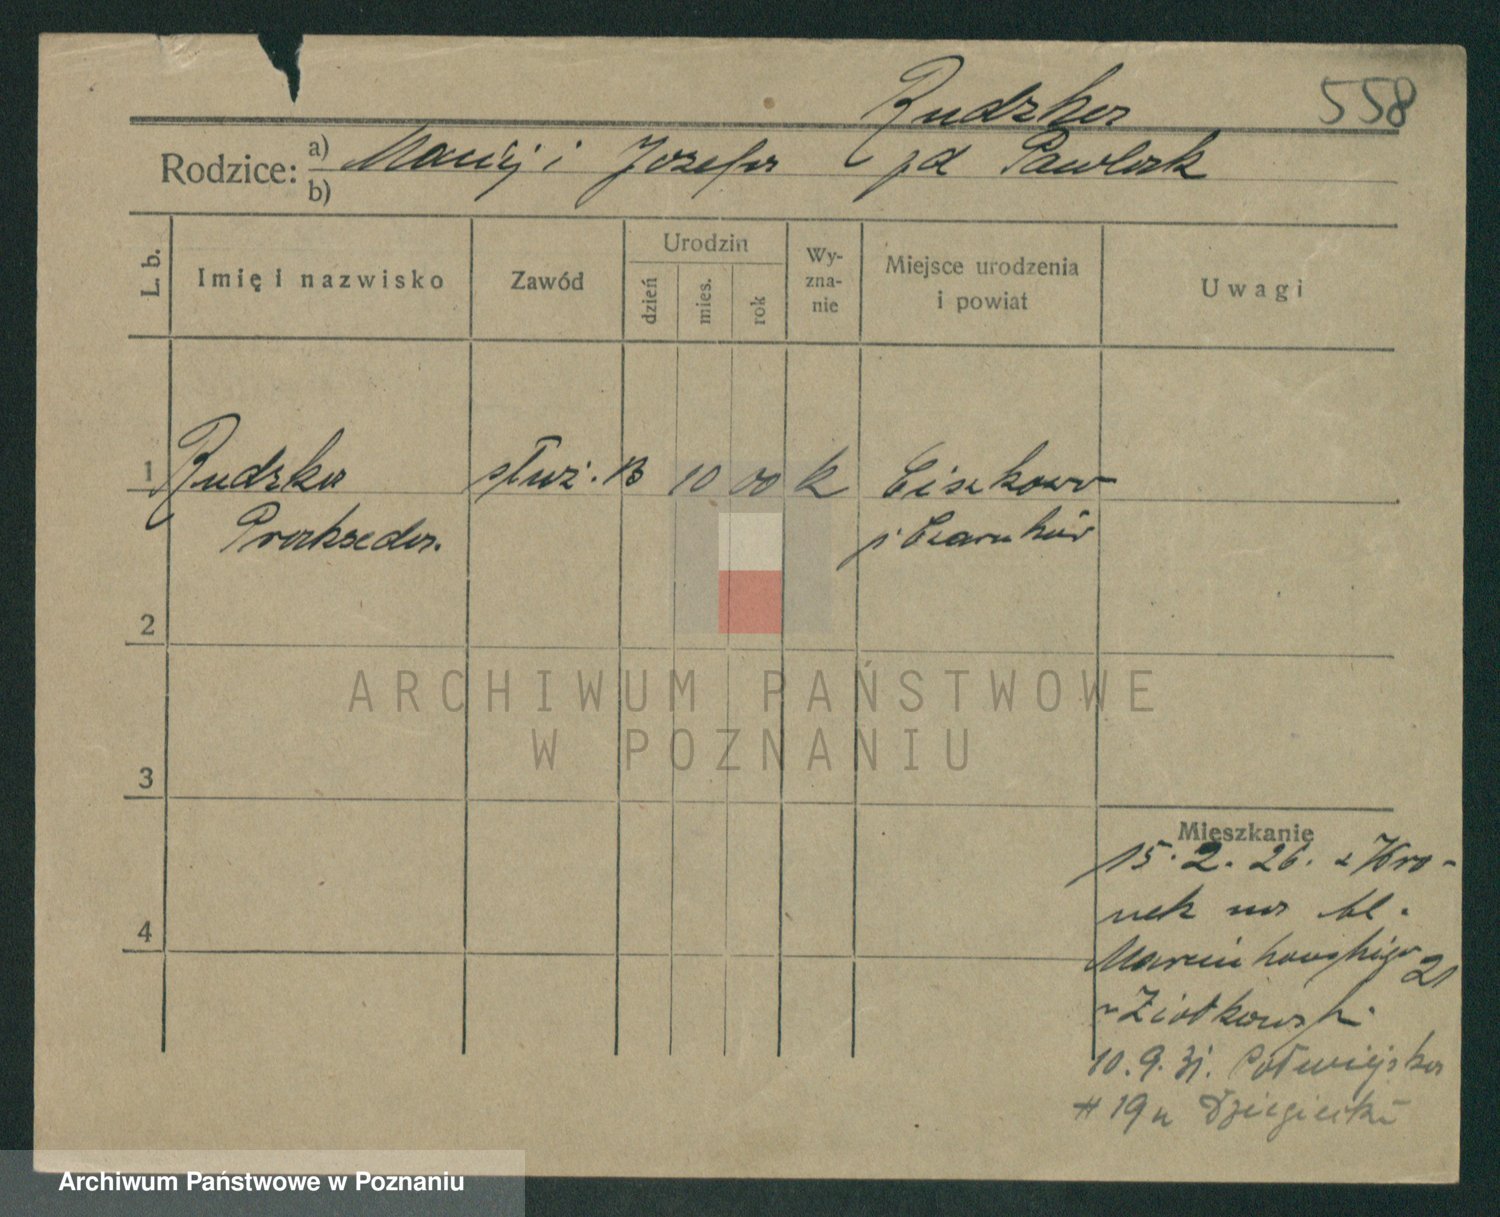 Rudzka 558
Rodzice: a) Maciej i Józefa zd Pawlak
b)
L. b.
Imię i nazwisko
Zawód
Urodzin
dzień
mies.
rok
Wy-
zna-
nie
Miejsce urodzenia
i powiat
Uwagi
1 Rudzka służ. 13 10 00 k Ciszkowo
Prakseda. p. Czarnków
2
ARCHIWUM PAŃSTWOWE
W POZNANIU
3
Mieszkanie
15.2.26. z Wro-
nek na Al.
4
Marcinkowskiego 21
u Ziołkowski
10.9.31. Półwiejska
# 19 u
Archiwum Państwowe w Poznaniu